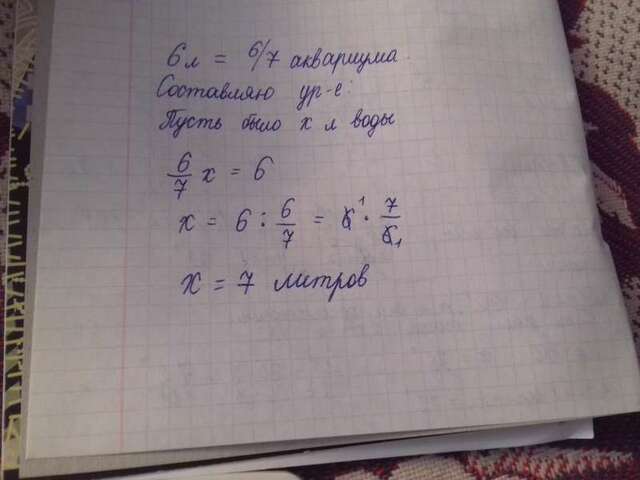 6 л = 6/7 аквариума.
Составляю ур-е:
Пусть было х л воды
6/7 х = 6
х = 6 : 6/7 = 6¹ · 7/6₁
х = 7 литров